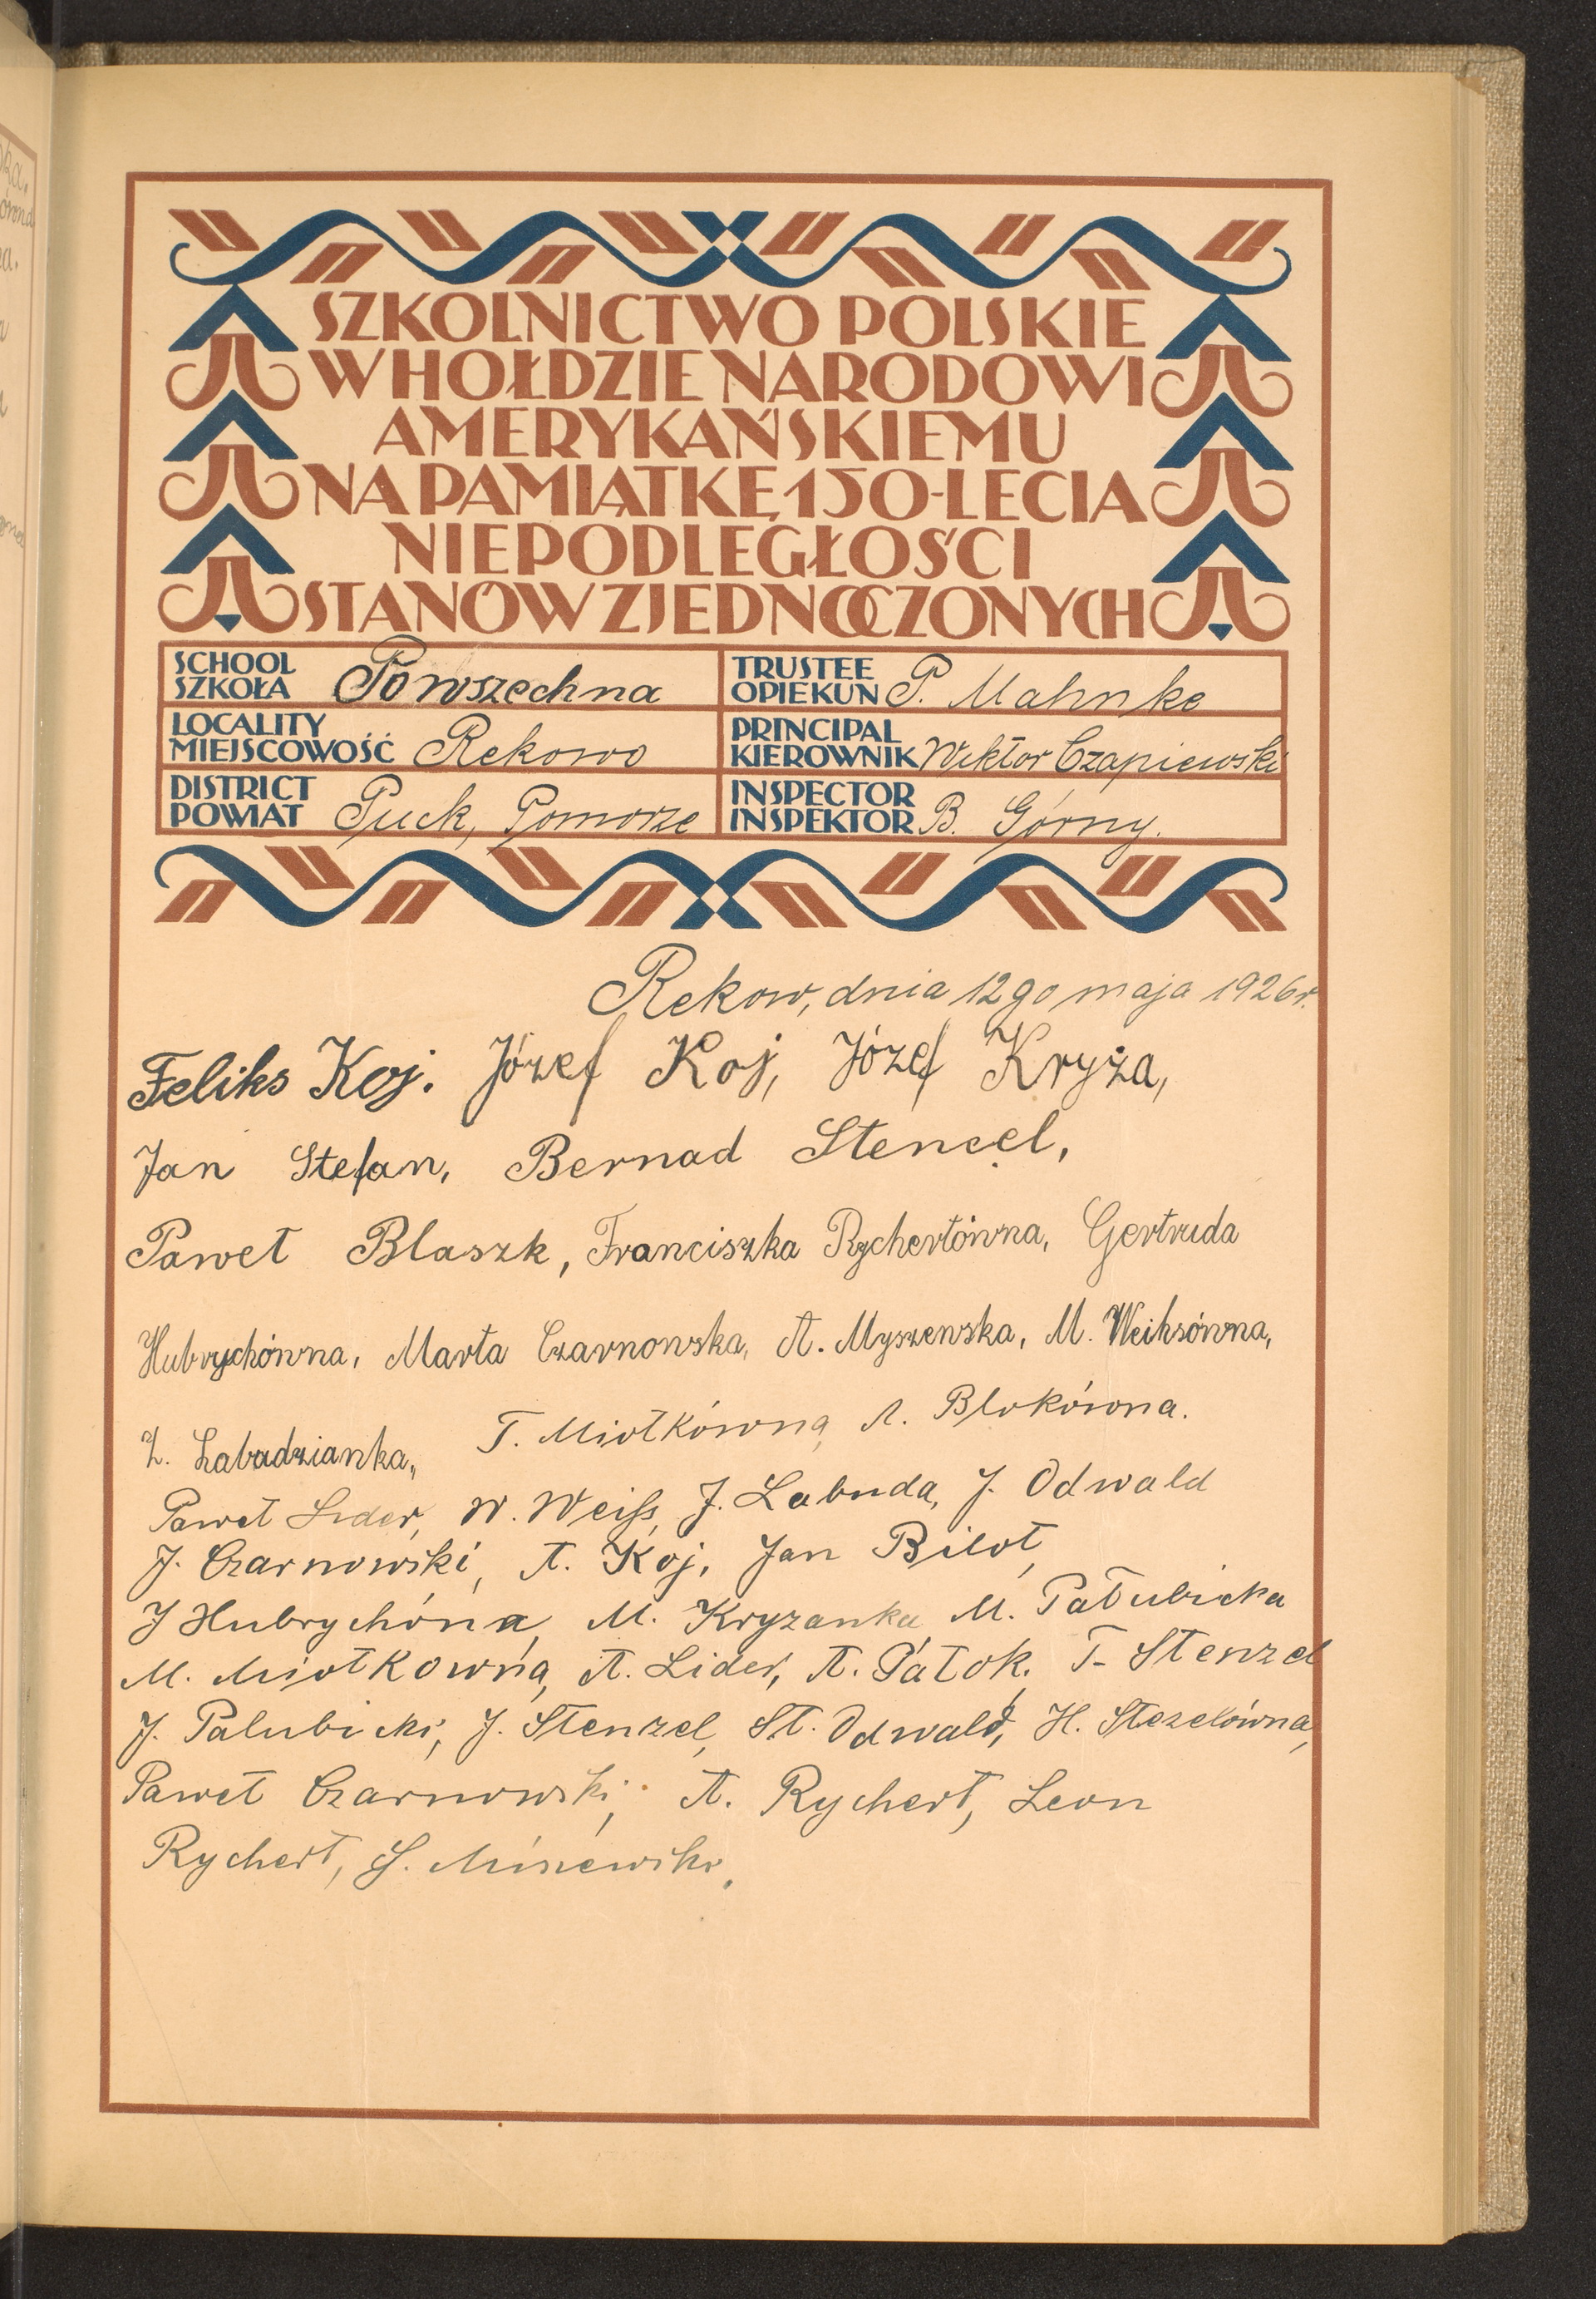 SZKOLNICTWO POLSKIE
W HOŁDZIE NARODOWI
AMERYKAŃSKIEMU
NA PAMIĄTKĘ 150-LECIA
NIEPODLEGŁOŚCI
STANÓW ZJEDNOCZONYCH
SCHOOL
SZKOŁA Powszechna
TRUSTEE
OPIEKUN P. Mahnke
LOCALITY
MIEJSCOWOŚĆ Rekowo
PRINCIPAL
KIEROWNIK Wiktor Czapiewski
DISTRICT
POWIAT Puck, Pomorze
INSPECTOR
INSPEKTOR B. Górny.
Rekow, dnia 12go maja 1926r.
Feliks Koj. Józef Koj, Józef Kryża,
Jan Stefan, Bernad Stencel,
Paweł Blaszk, Franciszka Rychertówna, Gertruda
Hubrychówna, Marta Czarnowska, A. Myszewska, M. Weihsówna,
Ł. Labudzianka, T. Miotkówna, A. Blokówna.
Paweł Lider, W. Weiß, J. Labuda, J. Odwald
J. Czarnowski, A. Koj, Jan Bilot,
J Hubrychóna, M. Kryzanka, M. Pałubicka
M. Miotkowna, A. Lider, A. Patok, T. Stenzel
J. Palubicki, J. Stenzel, St. Odwald, H. Stezelówna,
Paweł Czarnowski, A. Rychert, Leon
Rychert,